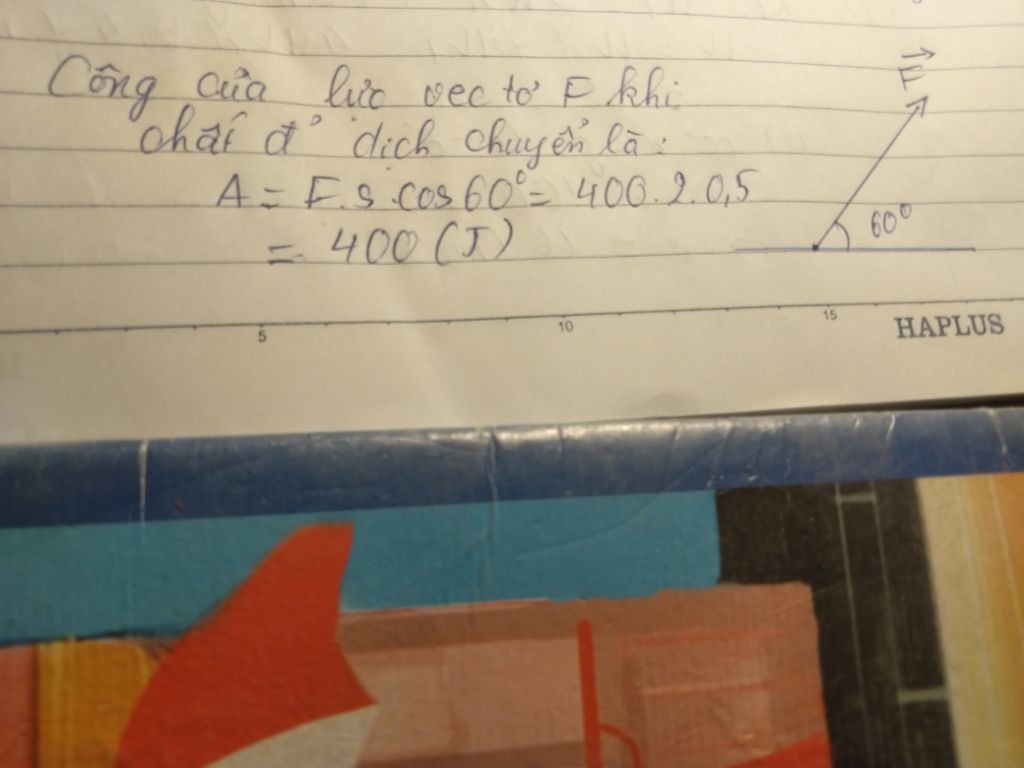 Công của lực vec tơ F khi
chất đ' dịch chuyển là:
A = F.s.cos60° = 400.2.0,5
= 400 (J)
F
60°
5 10 15
HAPLUS